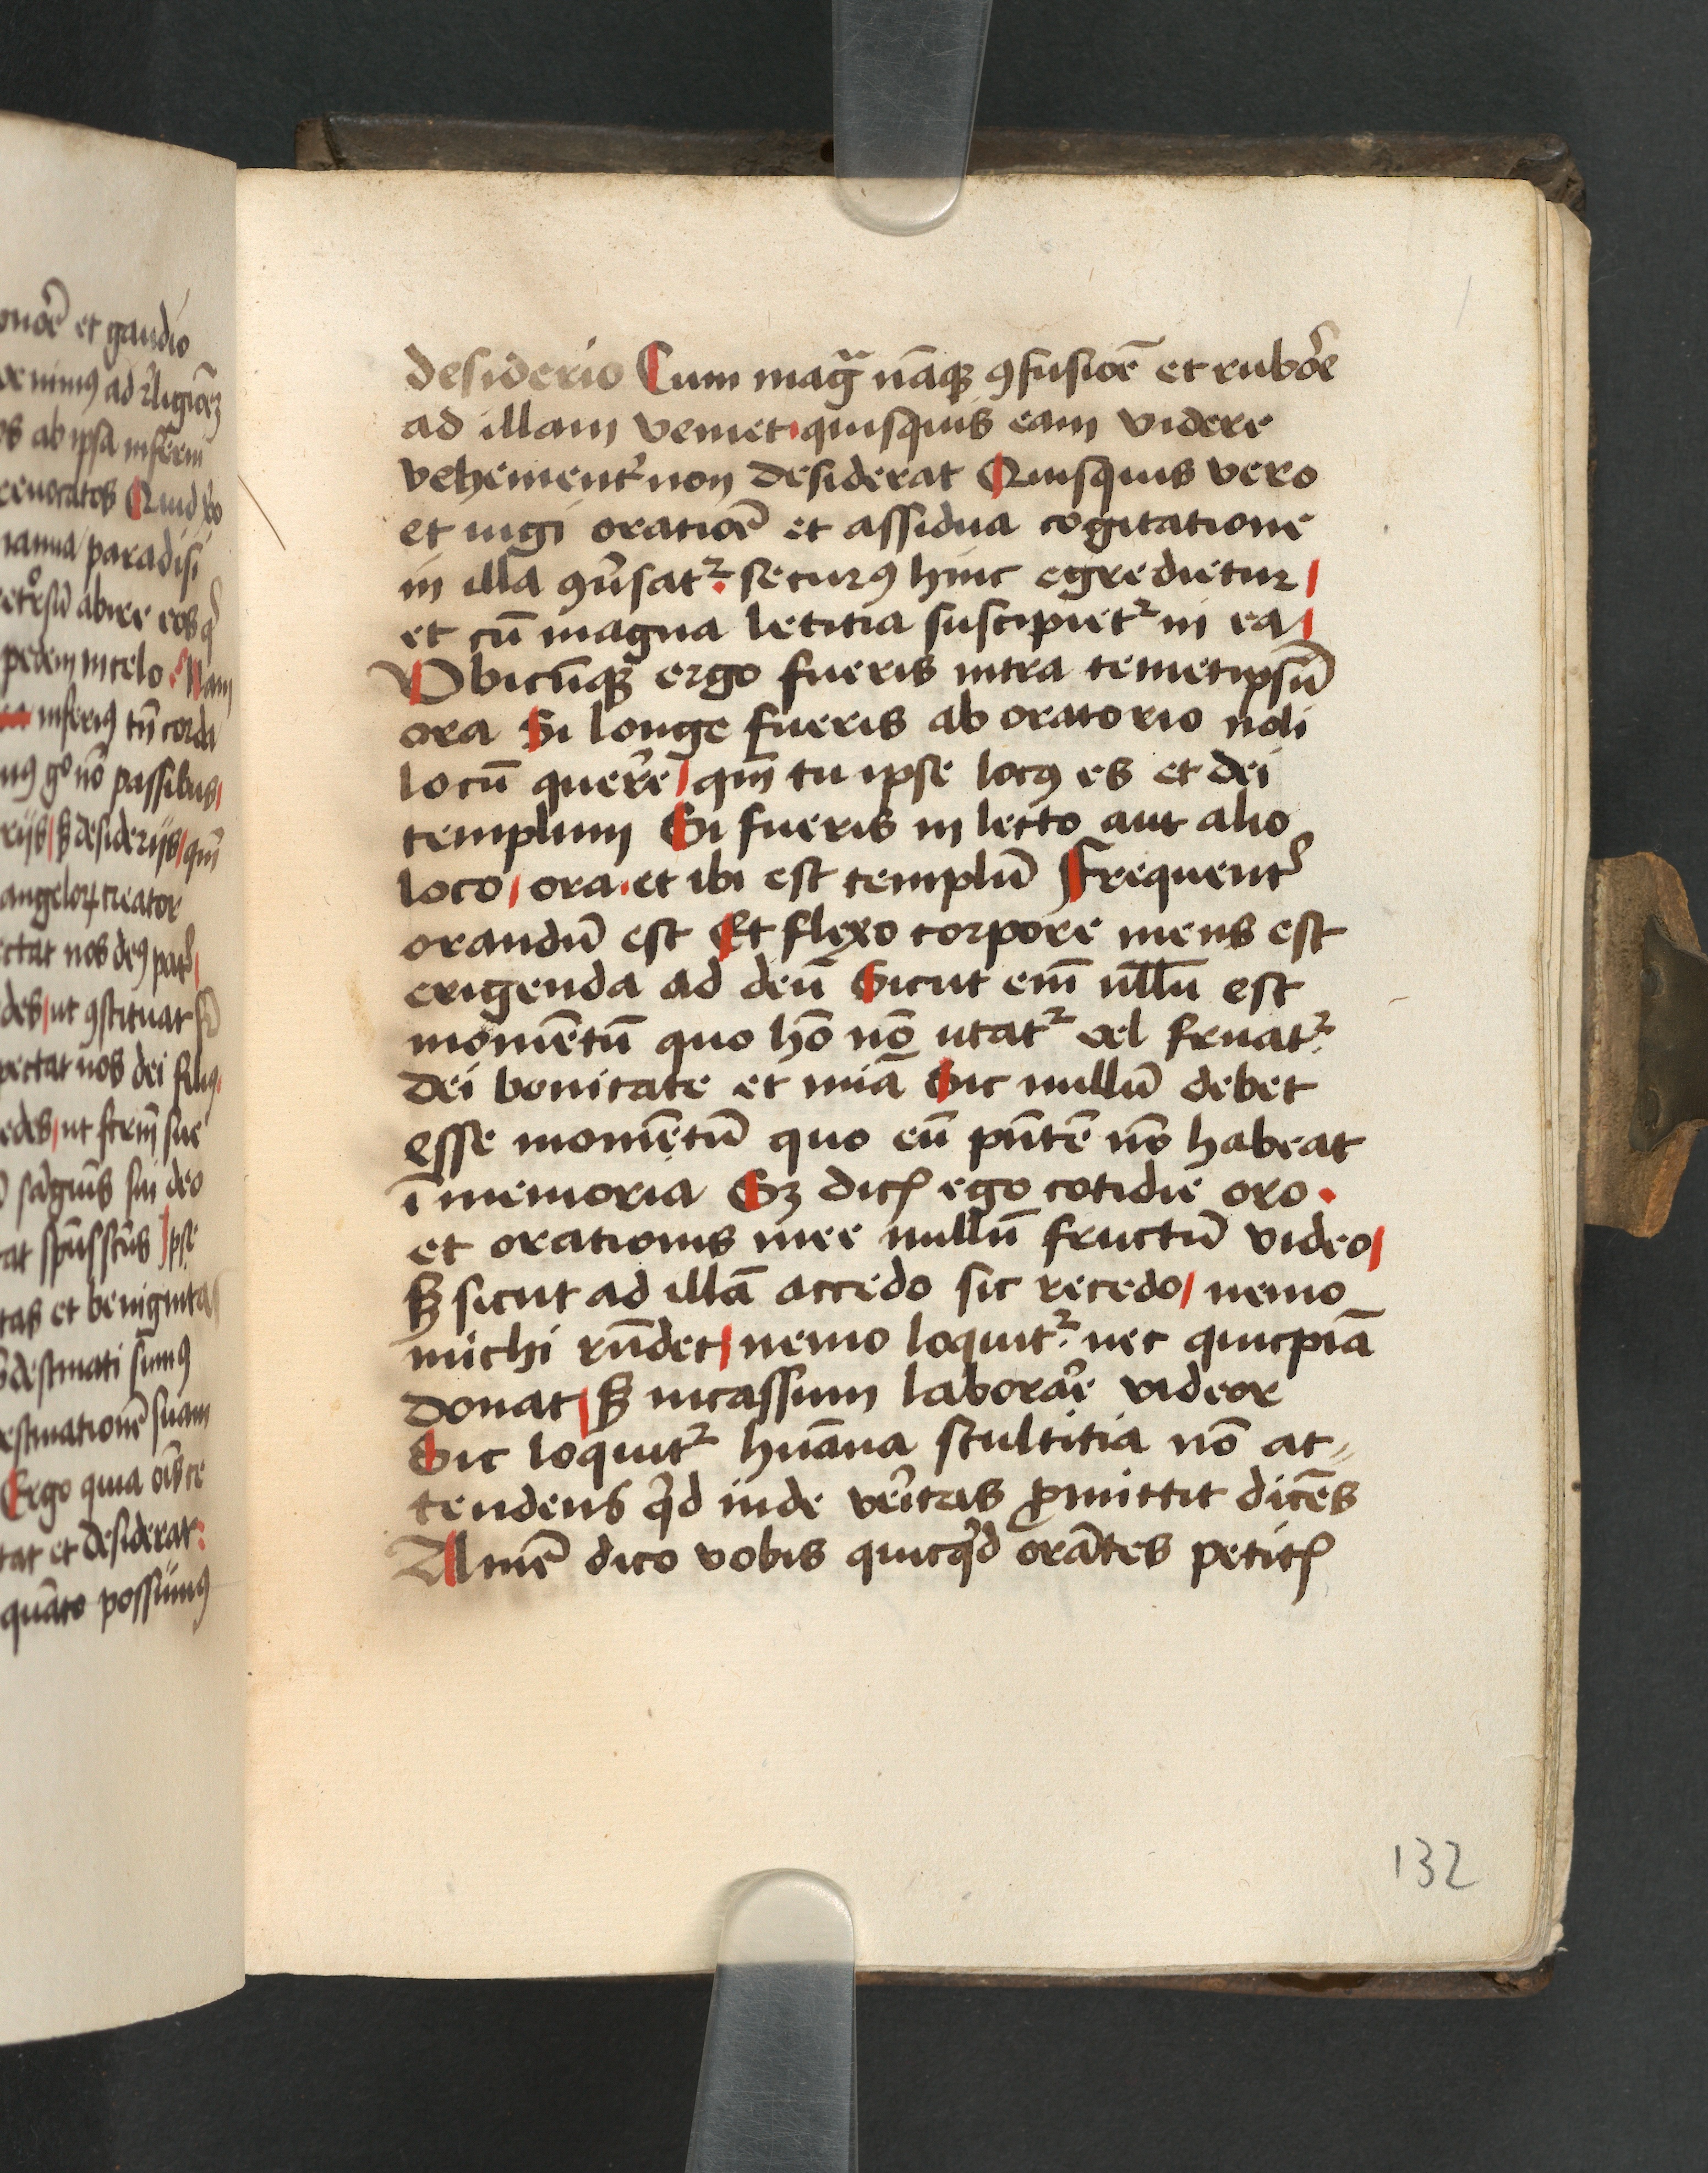 onoē et gaudio
ab ipsa inferni
Quid
ianua paradisi
abire eos
pedem in celo. Nam
inferiꝯ corda
nō passibus
desiderijs
angeloꝝ creator
ectat nos deꝯ
des ut ꝯstituat
pectat nos dei filiꝯ
edes ut sue
sui deo
at spūsscūs Ipse
tas et benignitas
destinati sumꝯ
estinationē suam
Ergo quia
tat et desiderat
quāto possumꝯ
desiderio Cum mag̃ nāqꝫ ꝯfusiōē et rubōe
ad illam veniet quisquis eam videre
vehement̾ non desiderat Quisquis vero
et iugi oratiōē et assidua cogitatione
in illa ꝯūsat᷑. securꝯ hinc egredietur
et cū magna letitia suscipiet᷑ in ea
Vbicūqꝫ ergo fueris intra temetipsū
ora Si longe fueris ab oratorio noli
locū quere̾ qm̄ tu ipse locꝯ es et dei
templum Si fueris in lecto aut alio
loco, ora. et ibi est templū Frequent̾
orandū est Et flexo corpore mens est
erigenda ad deū Sicut em̄ nllū est
momētū quo hō nō utat᷑ vel fruat᷑.
dei bonitate et mīa Sic nullū debet
esse momētū quo eū pn̄tē nō habeat
ī memoria Sꝫ dicꝭ ego cotidie oro.
et orationis mee nullū fructū video
sꝫ sicut ad illā accedo sic recedo, nemo
michi rn̄det, nemo loquit᷑. nec quicpiā
donat, sꝫ incassum laborāe videor
Sic loquit᷑ hūana stultitia nō at⸗
tendens qd̾ inde vēitas ꝓmittit dicēs
Amē dico vobis quicqd̾ orātes petitꝭ
132